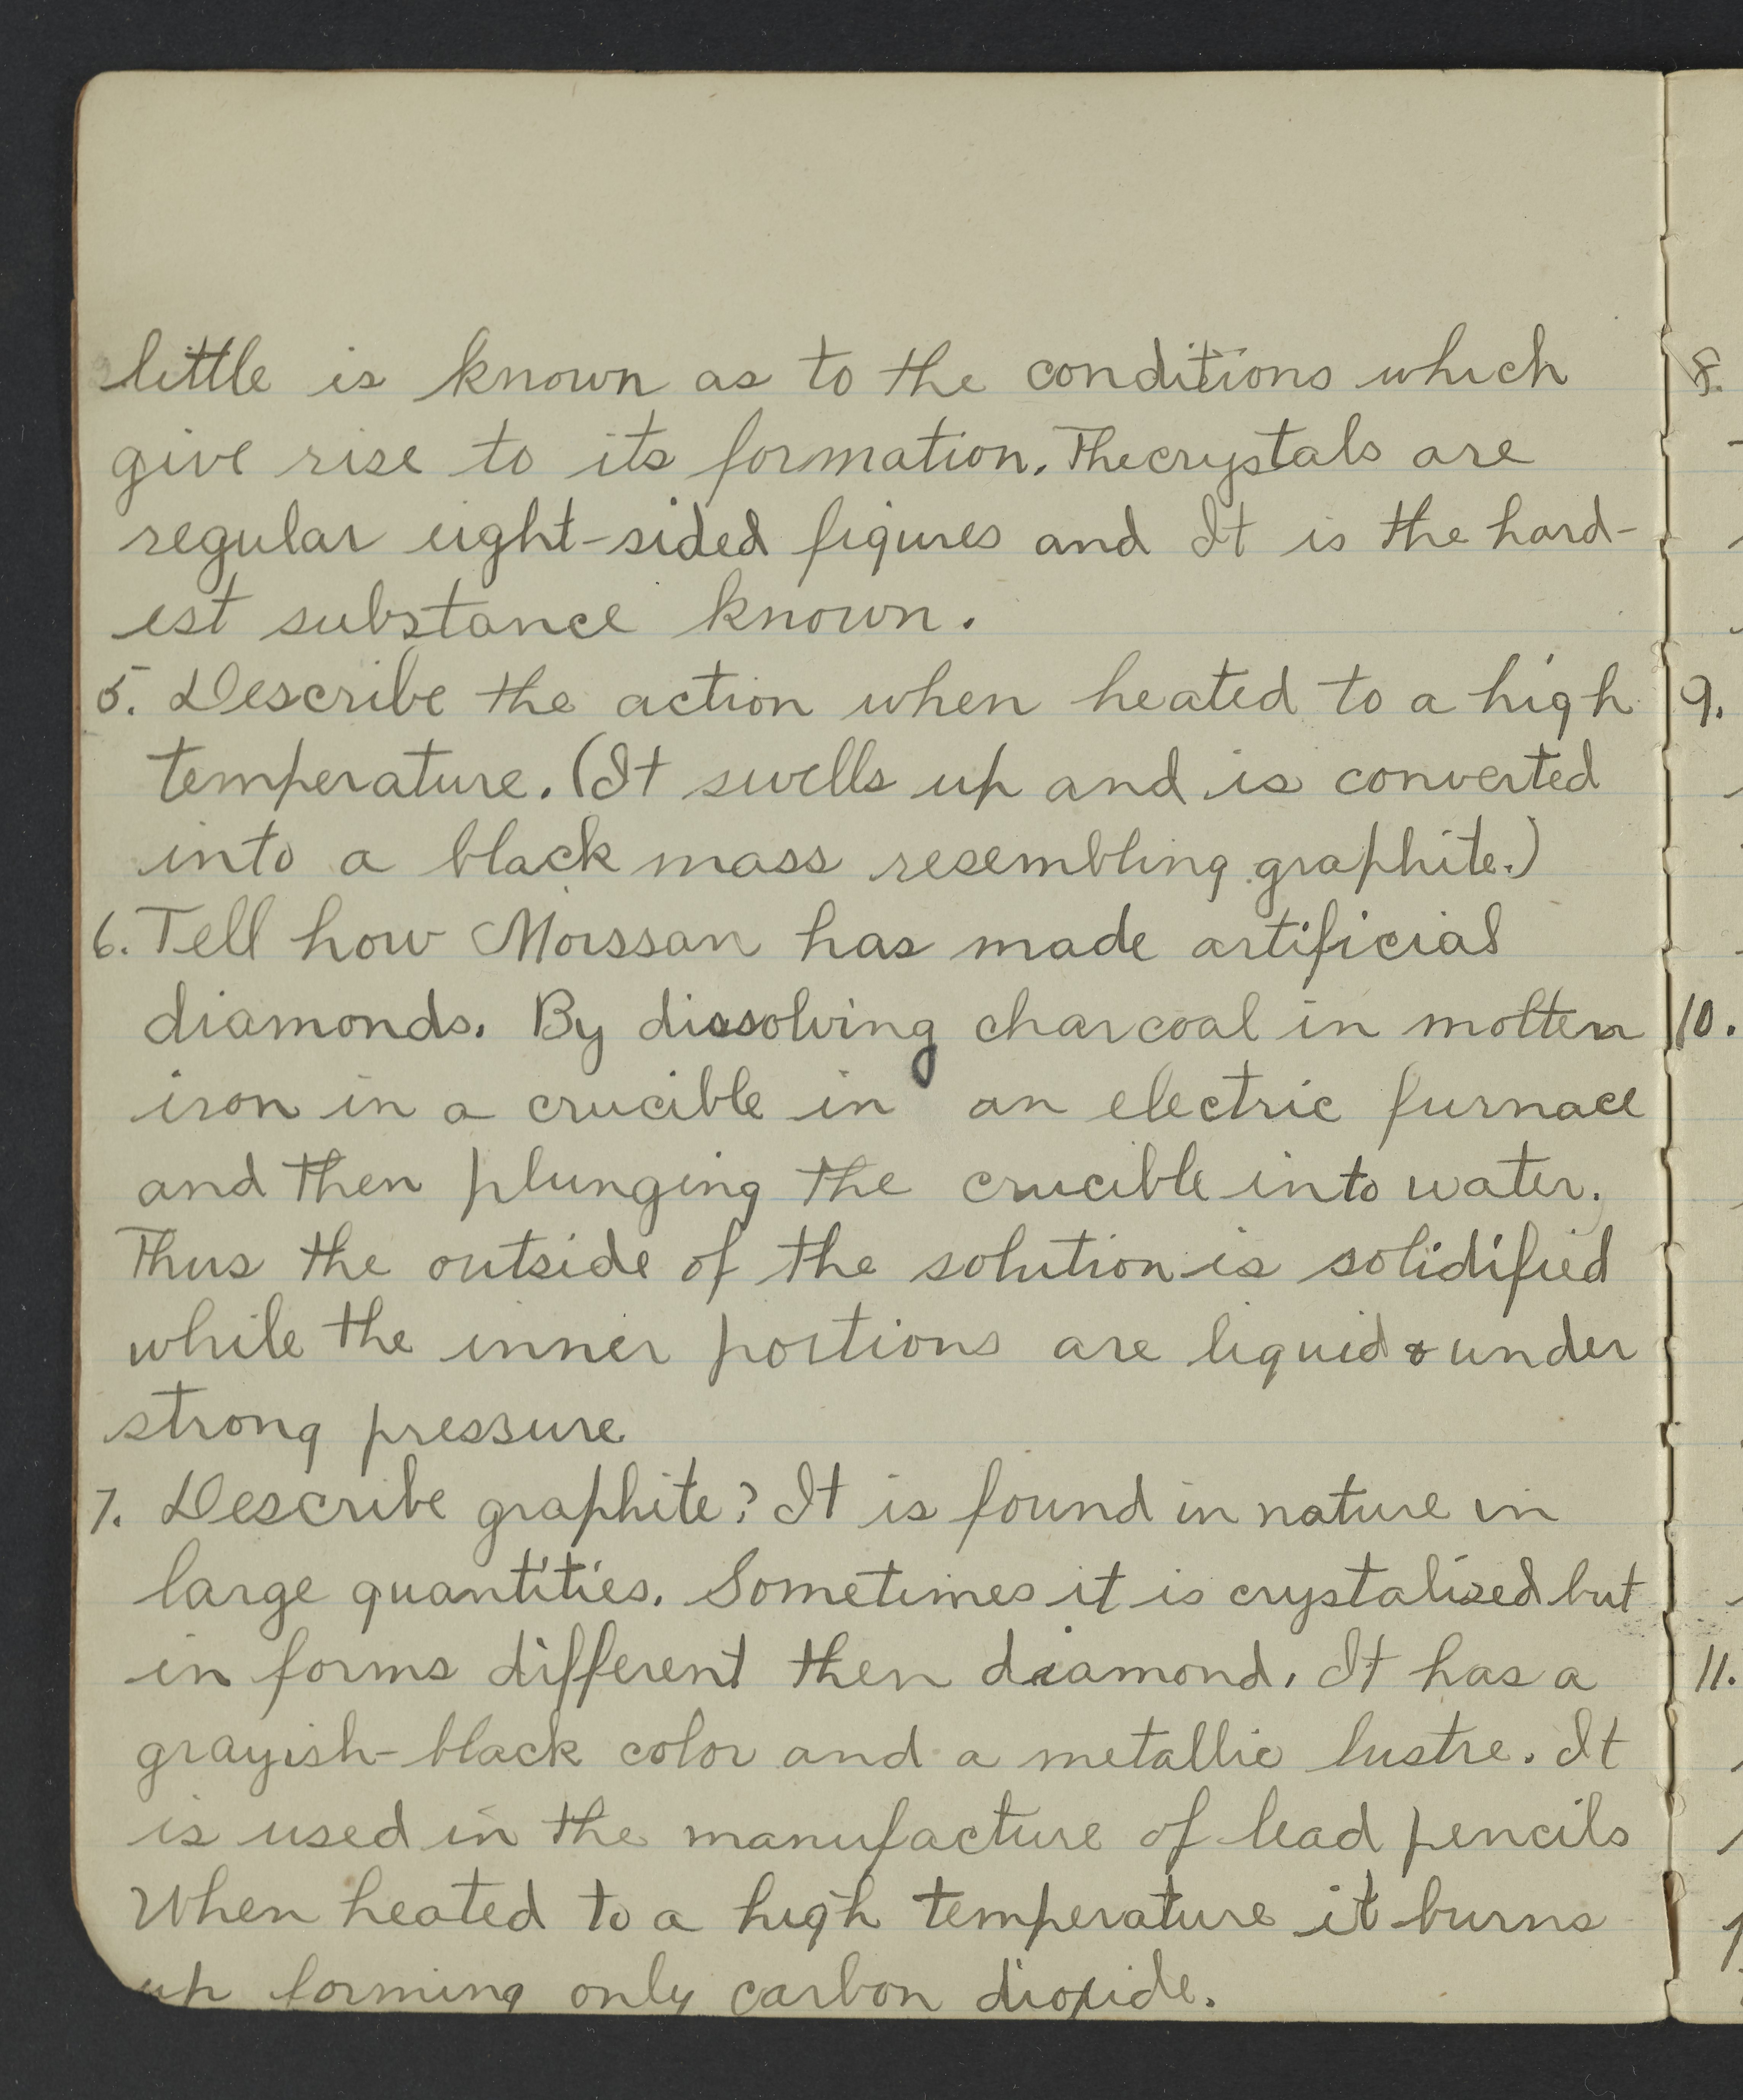 little is known as to the conditions which
give rise to its formation. The crystals are
regular eight-sided figures and It is the hard-
est substance known.
5. Describe the action when heated to a high
temperature. (It swells up and is converted
into a black mass resembling graphite.)
6. Tell how Moissan has made artificial
diamonds. By dissolving charcoal in molten
iron in a crucible in an electric furnace
and then plunging the crucible into water.
Thus the outside of the solution is solidified
while the inner portions are liquid & under
strong pressure
7. Describe graphite? It is found in nature in
large quantities. Sometimes it is crystalized but
in forms different then diamond. It has a
grayish-black color and a metallic lustre. It
is used in the manufacture of lead pencils
When heated to a high temperature it burns
up forming only carbon dioxide.
8.
9.
10.
11.